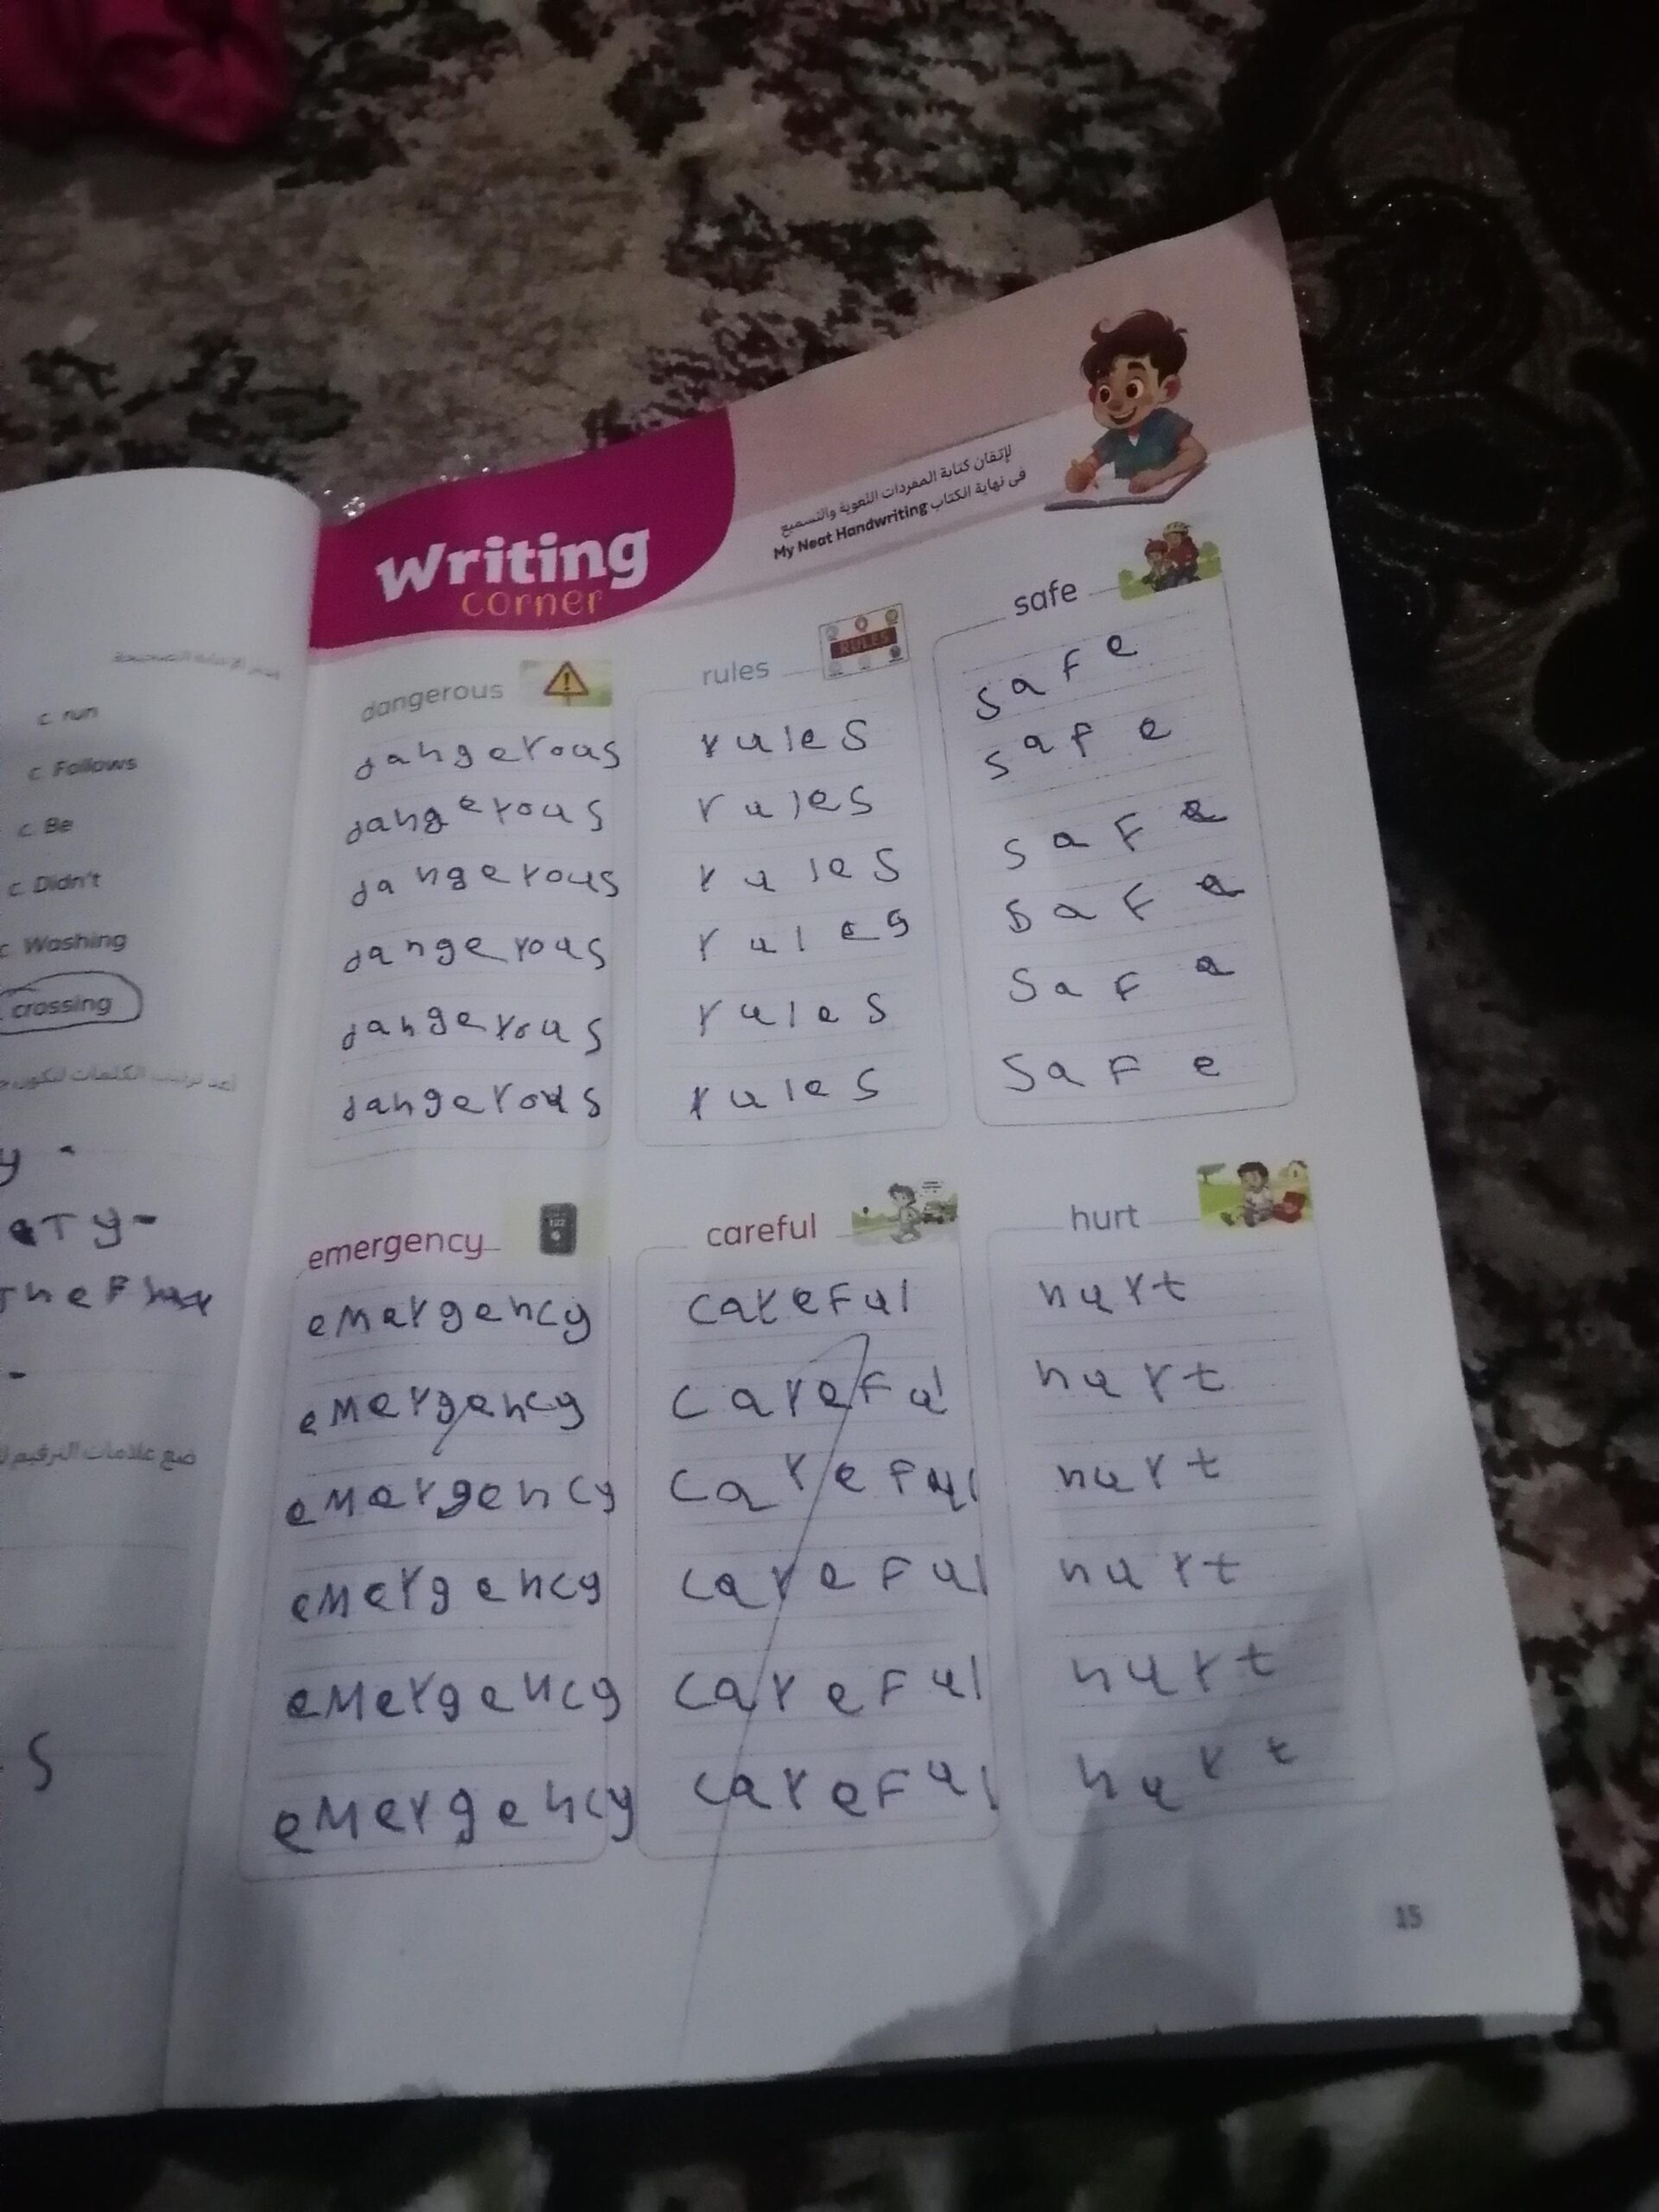 Writing
corner
لإتقان كتابة المفردات اللغوية والتسميع
فى نهاية الكتاب My Neat Handwriting
c. run
c. Follows
c. Be
c. Didn't
c. Washing
crossing
أعد ترتيب الكلمات لتكون
y -
ery-
ضع علامات الترقيم
S
dangerous
dangerous
dangerous
dangerous
dangerous
dangerous
dangerous
rules
RULES
rules
rules
rules
rules
rules
rules
safe
saFe
safe
saFe
saFe
SaFe
SaFe
emergency
emergency
emergency
emergency
emergency
emergency
emergency
careful
careFul
careFul
careFul
careFul
careFul
careFul
hurt
hurt
hurt
hurt
hurt
hurt
hurt
15